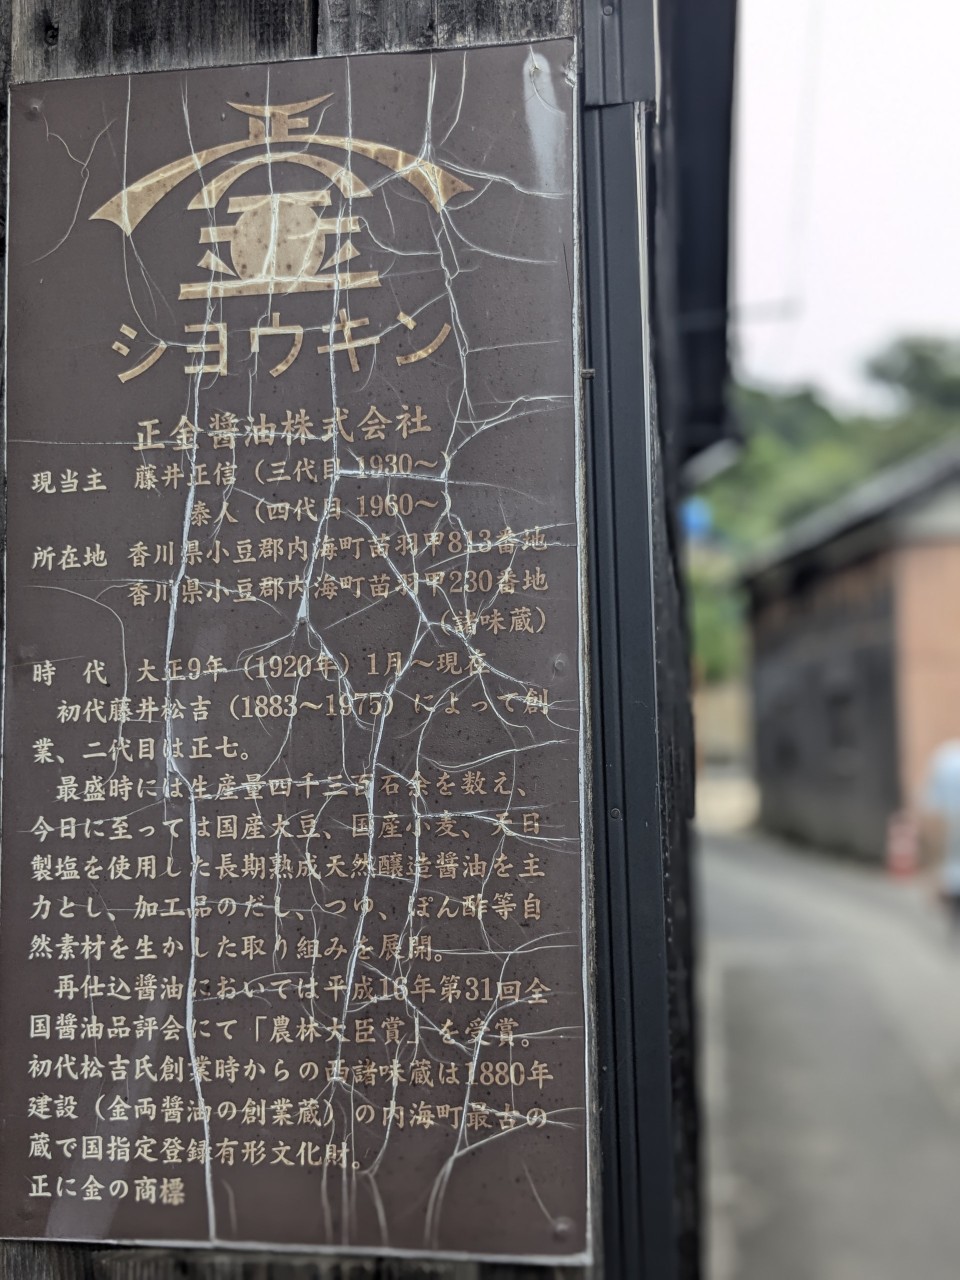 正
金
ショウキン
正金醤油株式会社
現当主 藤井正信（三代目 1930〜）
泰人（四代目 1960〜
所在地 香川県小豆郡内海町苗羽甲813番地
香川県小豆郡内海町苗羽甲230番地
（諸味蔵）
時 代 大正9年（1920年）1月〜現在
初代藤井松吉（1883〜1975）によって創
業、二代目は正七。
最盛時には生産量四千三百石余を数え、
今日に至っては国産大豆、国産小麦、天日
製塩を使用した長期熟成天然醸造醤油を主
力とし、加工品のだし、つゆ、ぽん酢等自
然素材を生かした取り組みを展開。
再仕込醤油においては平成16年第31回全
国醤油品評会にて「農林大臣賞」を受賞。
初代松吉氏創業時からの西諸味蔵は1880年
建設（金両醤油の創業蔵）の内海町最古の
蔵で国指定登録有形文化財。
正に金の商標